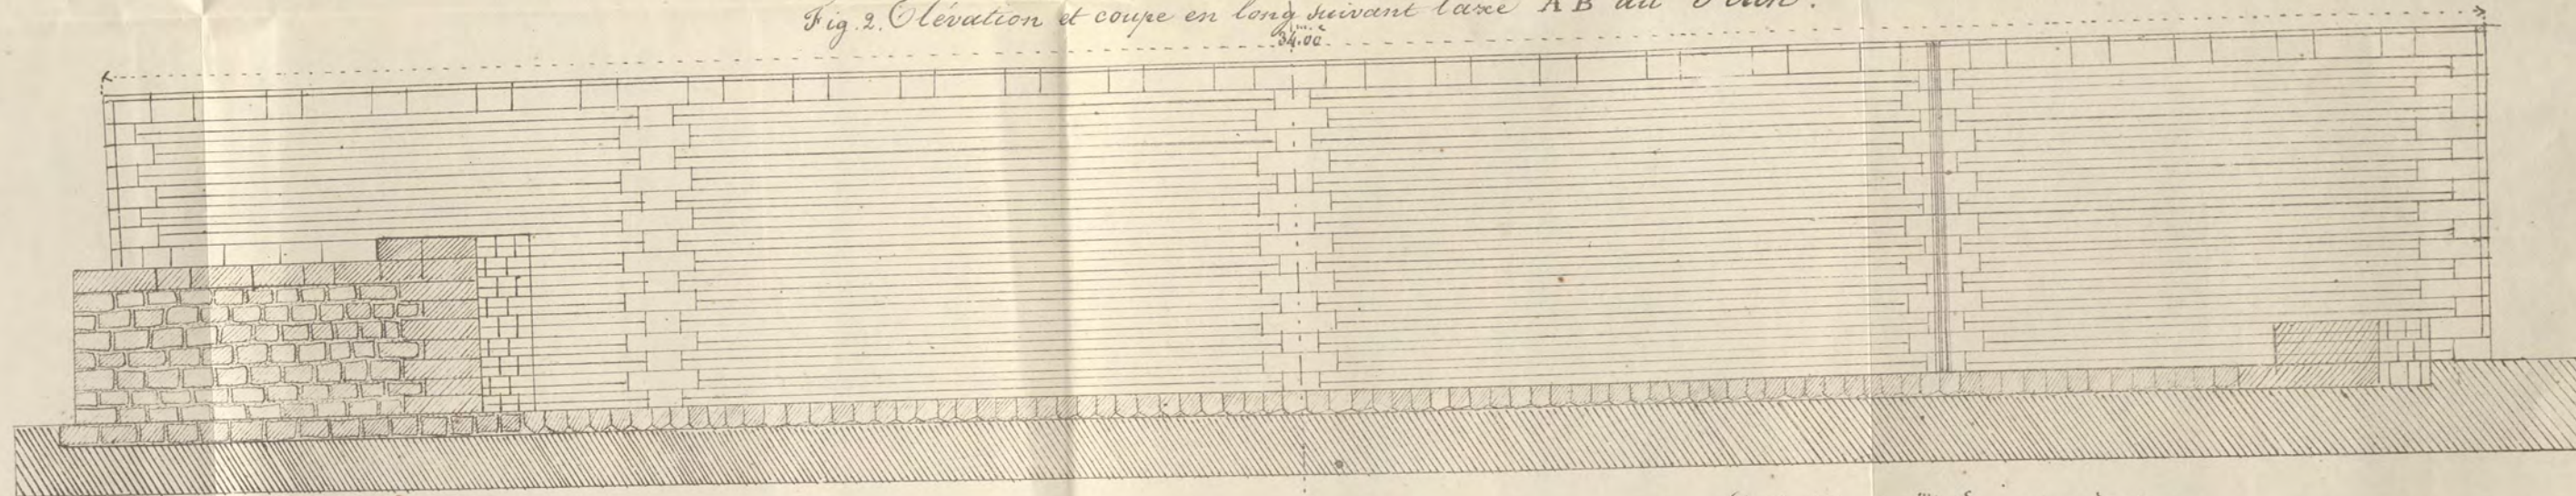 Fig. 2. Élévation et coupe en long suivant l'axe A B du Plan.
34.00